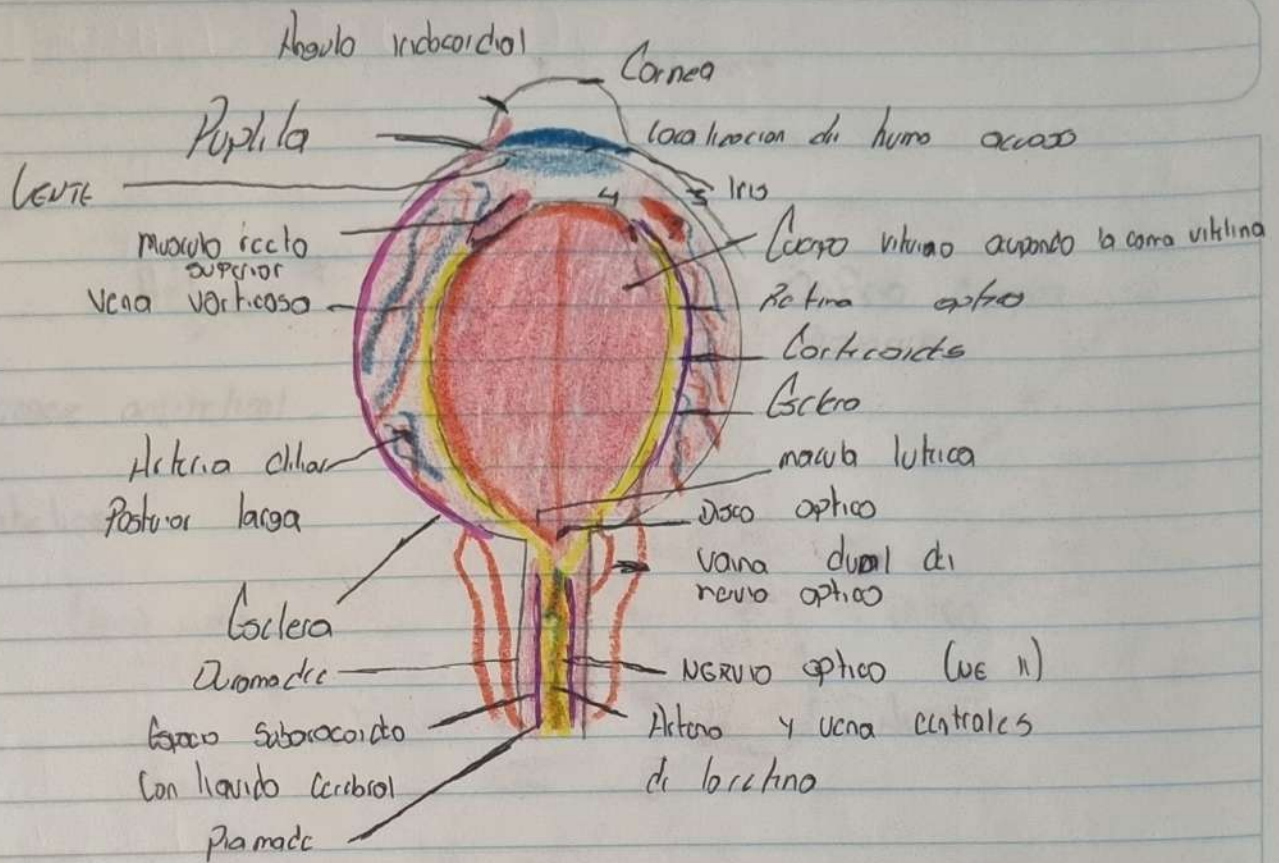 Angulo iridocordial
Cornea
Puplila
localizacion di humo acuoso
LENTE
Iris
musculo recto
superior
Cuerpo vitrino ocupando la cama vitilina
vena vorticoso
Retina optica
Corticoids
Esclero
Arteria ciliar
Posterior larga
macula lutrica
Disco optico
vaina dural di
nervio optico
Esclera
Duromadre
NERVIO optico (NE II)
Espacio Subaracoidto
Con liquido Cerebral
Arteria y vena centrales
di la retina
Piamade